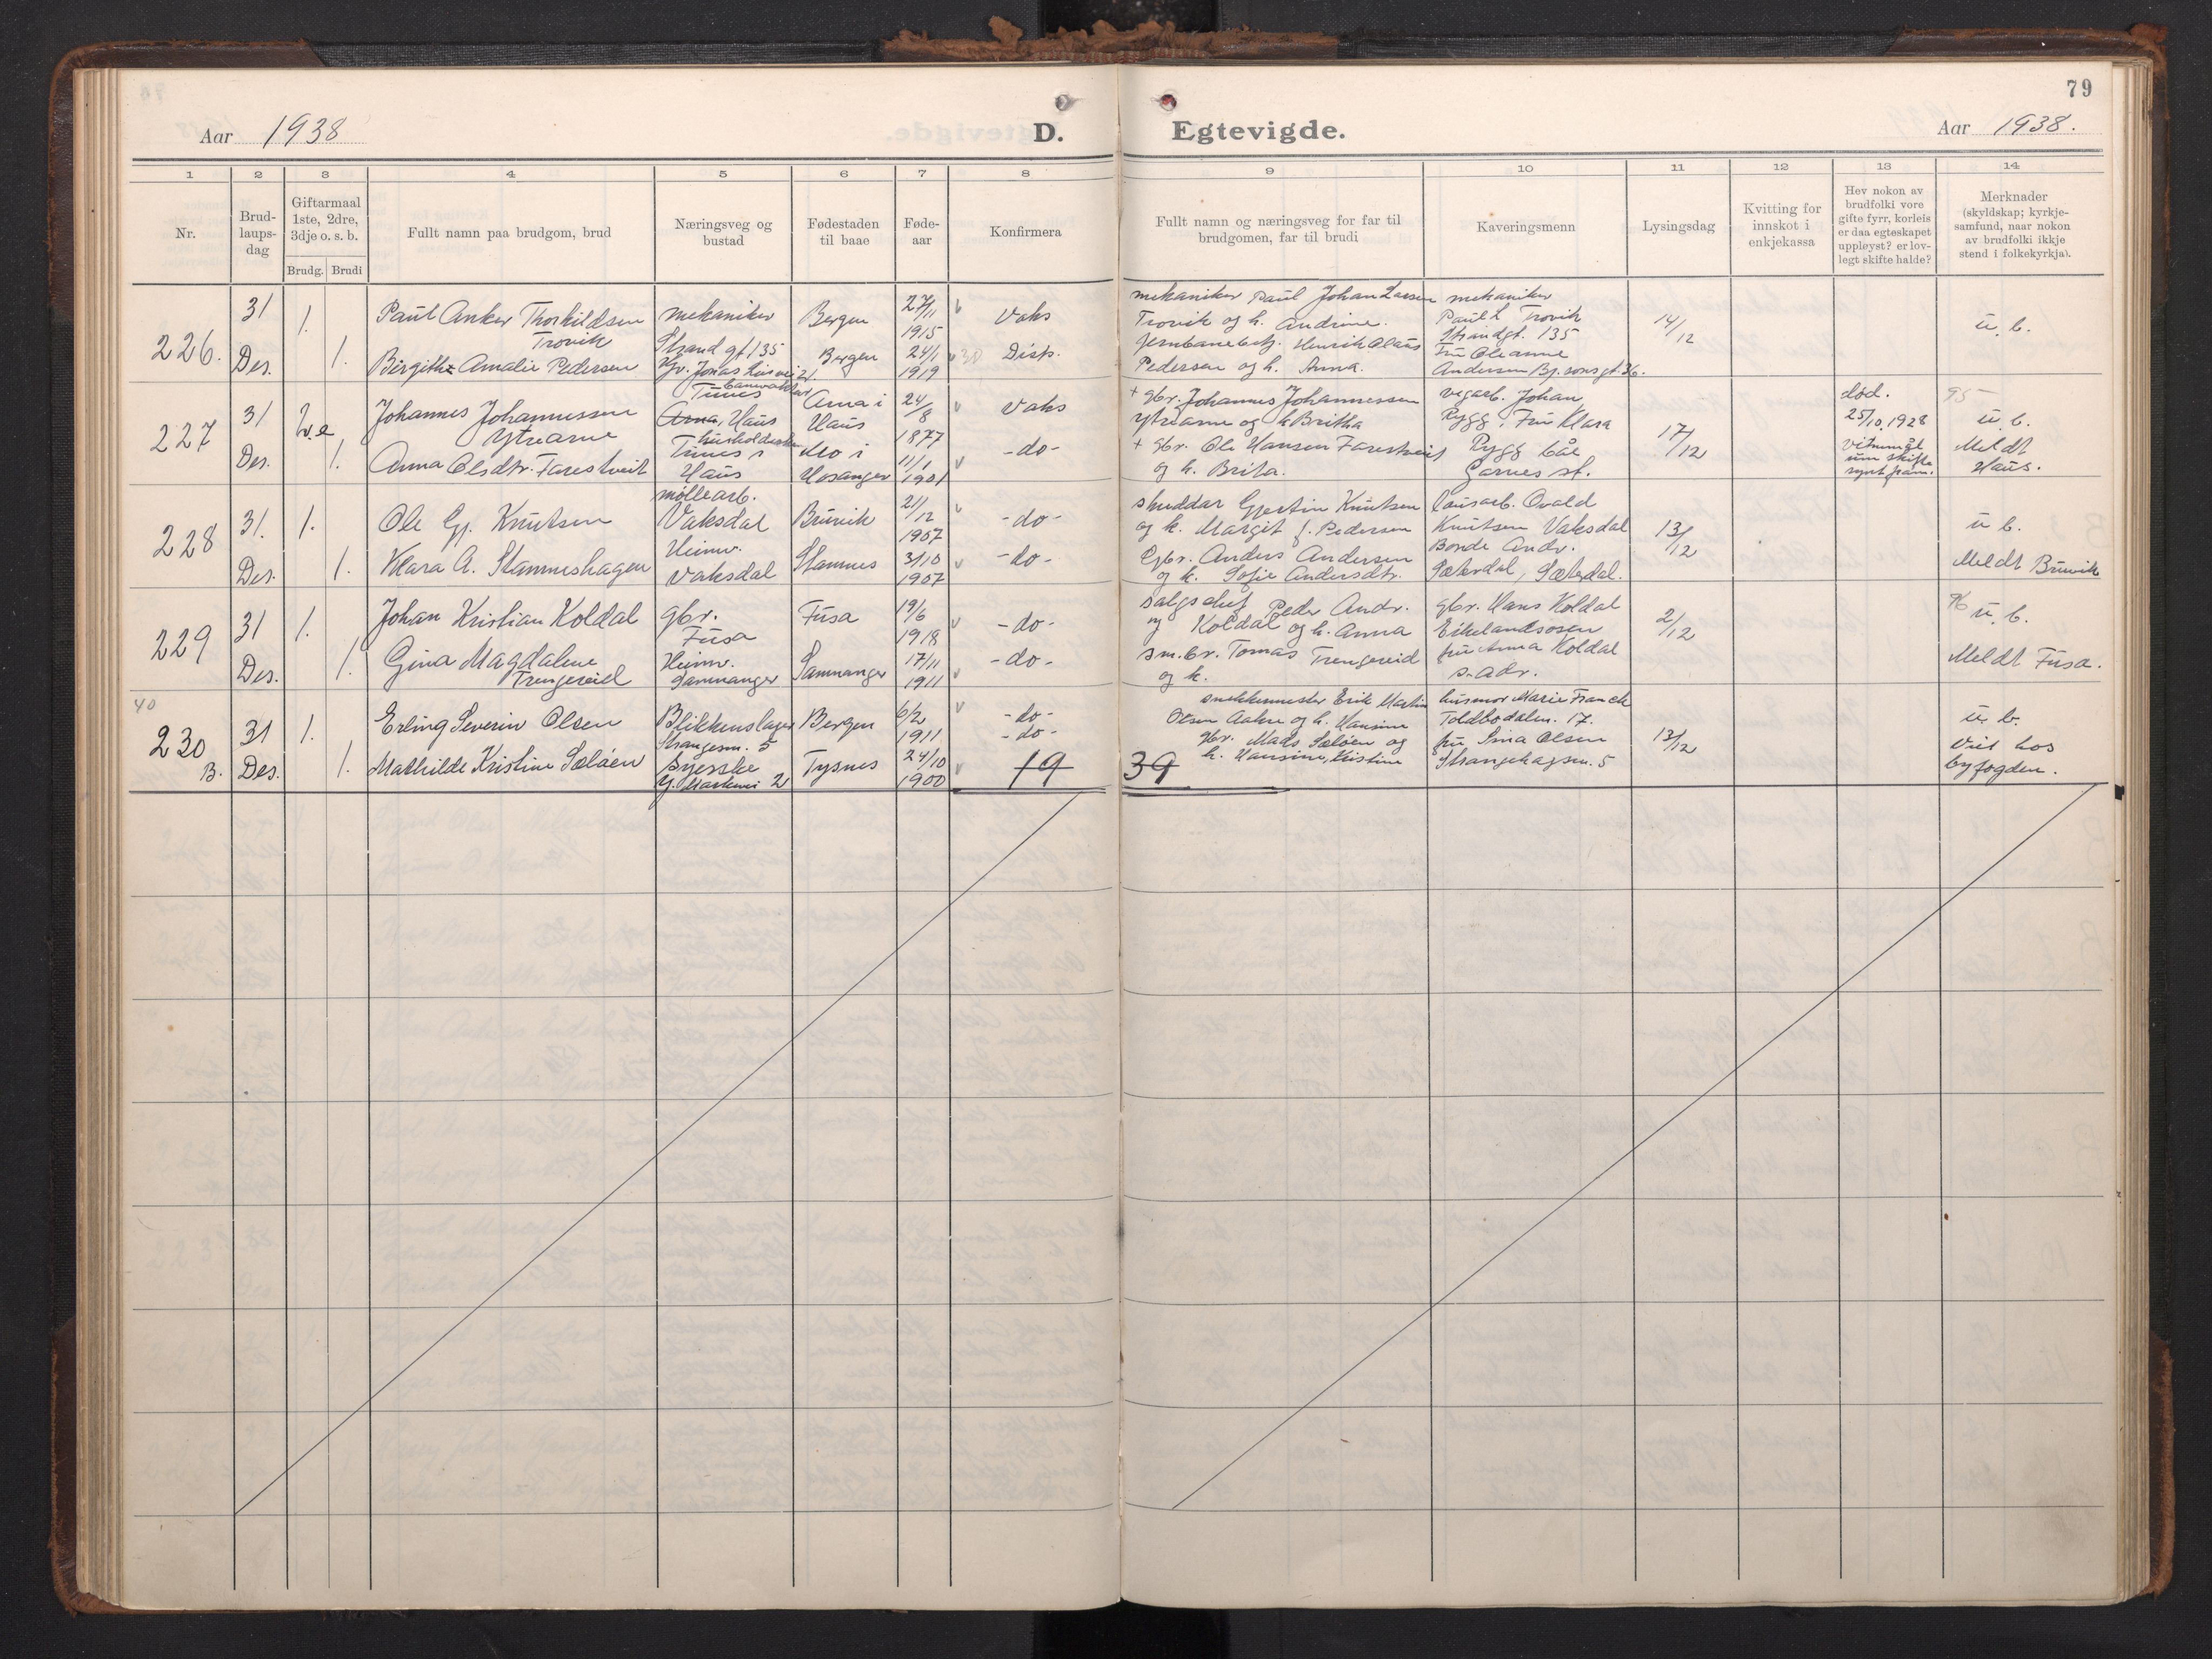 79
Aar 1938
D. Egtevigde.
Aar 1938.
1 2 3 4 5 6 7 8 9 10 11 12 13 14
Nr.
Brud-
laups-
dag
Giftarmaal
1ste, 2dre,
3dje o. s. b.
Brudg. Brudi
Fullt namn paa brudgom, brud
Næringsveg og
bustad
Fødestaden
til baae
Føde-
aar
Konfirmera
Fullt namn og næringsveg for far til
brudgomen, far til brudi
Kaveringsmenn
Lysingsdag
Kvitting for
innskot i
enkjekassa
Hev nokon av
brudfolki vore
gifte fyrr, korleis
er daa egteskapet
uppløyst? er lov-
legt skifte halde?
Merknader
(skyldskap; kyrkje-
samfund, naar nokon
av brudfolki ikkje
stend i folkekyrkja).
226.
31
Des.
1.
1.
Paul Anker Thorkildsen
Trovik
Birgithe Amalie Pedersen
mekaniker
Strandgt 135
Bergen
Bergen
27/11
1915
24/1
1919
Vaks
Disp.
mekaniker Paul Johan Larsen
Trovik og h. Andrine.
Henrik Olaus
Pedersen og h. Anna.
mekaniker
Paul L Trovik
Strandgt. 135
Fru Oleanne
Andersen
14/12
u. b.
227
31
Des.
1.
Johannes Johannessen
Ytrearne
Anna Olsdtr. Farestveit
Tunes
Arna, Haus
Tunes i
Haus
Arna i
Haus
Mo i
Hosanger
24/8
1877
11/1
1901
Vaks
-do-
+ gbr. Johannes Johannessen
Ytrearne og h Britha
+ gbr. Ole Hansen Farestveit
og h. Brita.
vegarb. Johan
Rygg, Fru Klara
Rygg
Garnes st.
17/12
død.
25/10.1928
Vitnemål
um skifte
synt fram.
95
u. b.
Meldt
Haus.
228
31.
Des.
1.
1.
Ole Gj. Knutsen
Klara A. Stamneshagen
møllearb.
Vaksdal
Heimv.
Vaksdal
Bruvik
Stamnes
21/12
1907
3/10
1907
-do-
-do-
Gjertin Knutsen
og h. Margit f. Pedersen
Gbr. Anders Andersen
og h. Sofie Andersdtr.
Knutsen Vaksdal
Bonde Andr.
Sæterdal, Sæterdal.
13/12
u b.
Meldt Bruvik
229
31
Des.
1.
1.
Johan Kristian Koldal
Gina Magdalene
Trengereid
gbr.
Fusa
Heimv.
Samnanger
Fusa
Samnanger
19/6
1918
17/11
1911
-do-
-do-
salgschef Peder Andr.
Koldal og h. Anna
sm.br. Tomas Trengereid
og h.
gbr. Hans Koldal
Eikelandsosen
fru Anna Koldal
s. adr.
2/12
96
u. b.
Meldt Fusa.
40
230
B.
31
Des.
1.
1.
Erling Severin Olsen
Mathilde Kristine Sæløen
Blikkenslager
Strangesm. 5
Syerske
Bergen
Tysnes
6/2
1911
24/10
1900
-do-
-do-
19
39
snekkermester Erik Martin
Olsen Aakre og h. Hansine
gbr. Mads Sæløen og
h. Hansine, Kristine
husmor Marie Franck
Toldbodalm. 17.
fru Sina Olsen
Strangehagen. 5
13/12
u. b.
Viet hos
byfogden.